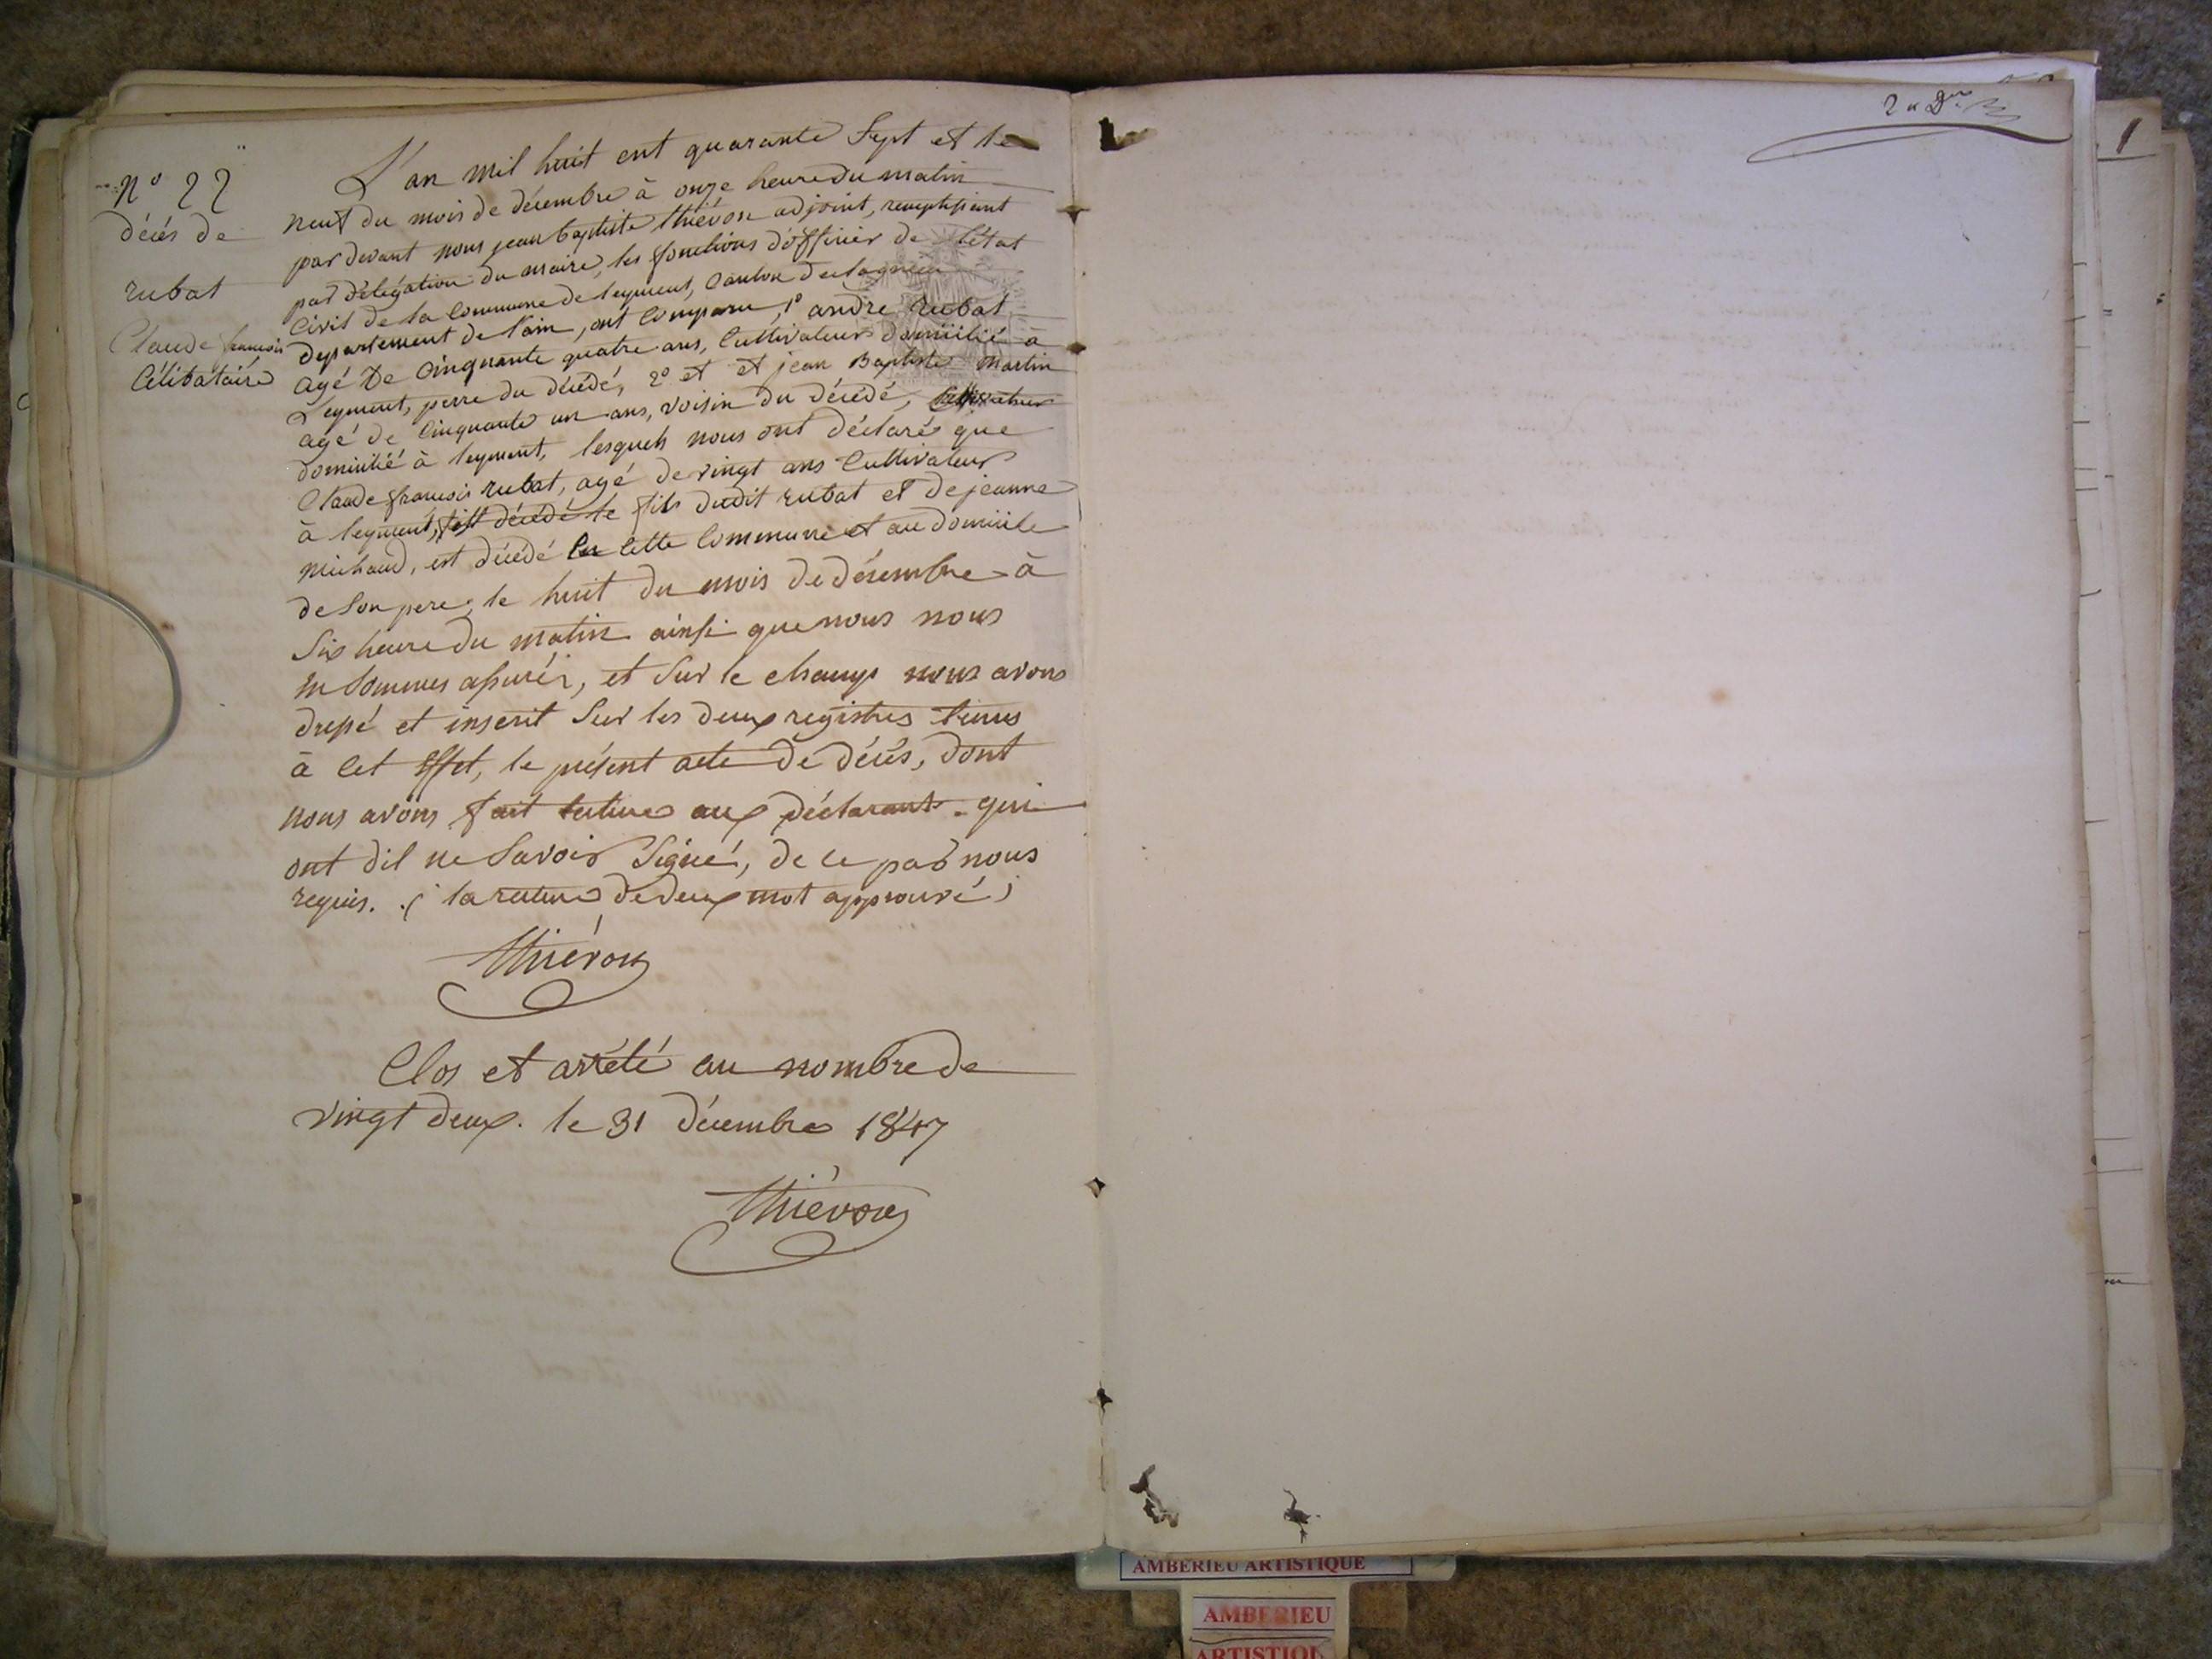 N° 22
décés de
rubat
Claude francois
Célibataire
L'an mil huit cent quarante Sept et le
neuf du mois de décembre à onze heure du matin
par devant nous jean baptiste thiévon adjoint, remplissant
par délégation du maire, les fonctions d'officier de l'état
Civil de la Commune de leyment, Canton de lagnieu
département de l'ain, ont Comparu, 1° andré Rubat
agé De Cinquante quatre ans, Cultivateur domicilié à
Leyment, perre du décédé, 2° et et jean Baptiste Martin
agé de Cinquante un ans, voisin du décédé, Cultivateur
domicilié à leyment, lesquels nous ont déclaré que
Claude francois rubat, agé de vingt ans Cultivateur
à leyment, est décédé le fils dudit rubat et de jeanne
michaud, est décédé en Cette Commune et au domicile
de Son pere, le huit du mois de décembre à
Six heure du matin ainsi que nous nous
en Sommes assurér, et Sur le champ nous avons
dressé et inscrit Sur les deux registres tenus
à Cet Effet, le présent acte De Décés, Dont
nous avons fait lecture aux déclarant. qui
ont dit ne Savoir Signé, de ce par nous
requis. ( la rature de deux mot approuvé )
Thiévon
Clos et arrété au nombre de
vingt deux. le 31 décembre 1847
Thiévon
1
AMBERIEU ARTISTIQUE
AMBERIEU
ARTISTIQU